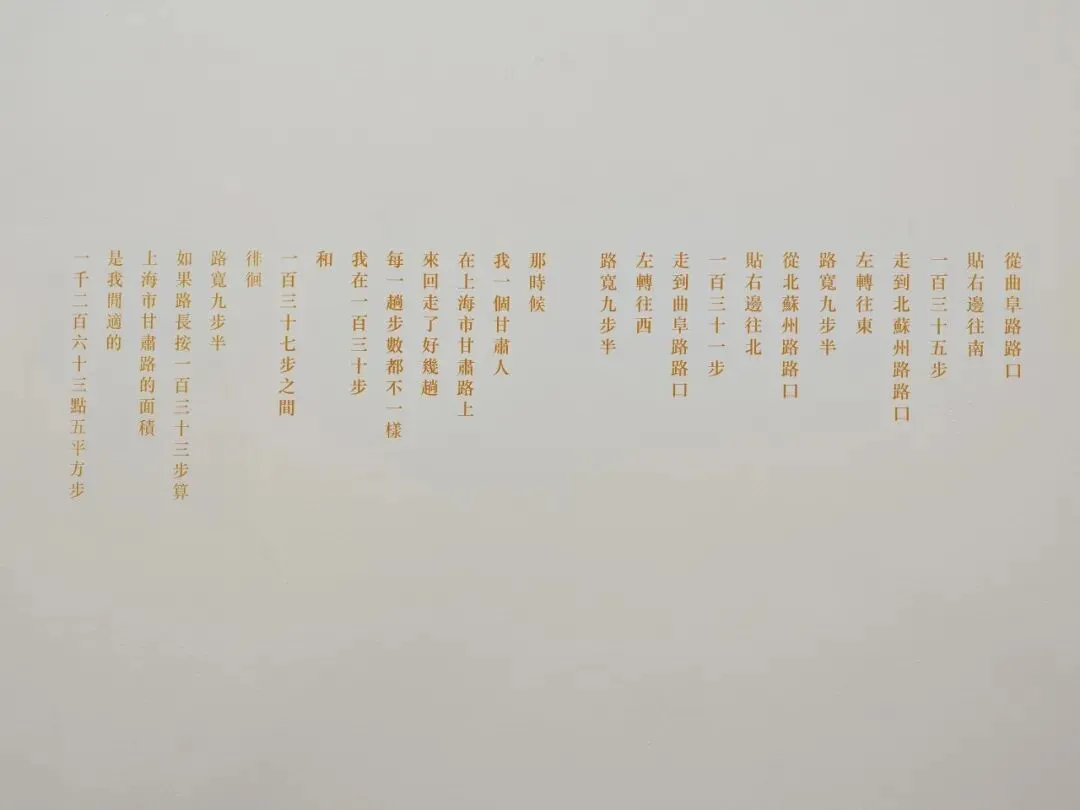 從曲阜路路口
貼右邊往南
一百三十五步
走到北蘇州路路口
左轉往東
路寬九步半
從北蘇州路路口
貼右邊往北
一百三十一步
走到曲阜路路口
左轉往西
路寬九步半
那時候
我一個甘肅人
在上海市甘肅路上
來回走了好幾趟
每一趟步數都不一樣
我在一百三十步
和
一百三十七步之間
徘徊
路寬九步半
如果路長按一百三十三步算
上海市甘肅路的面積
是我閒適的
一千二百六十三點五平方步